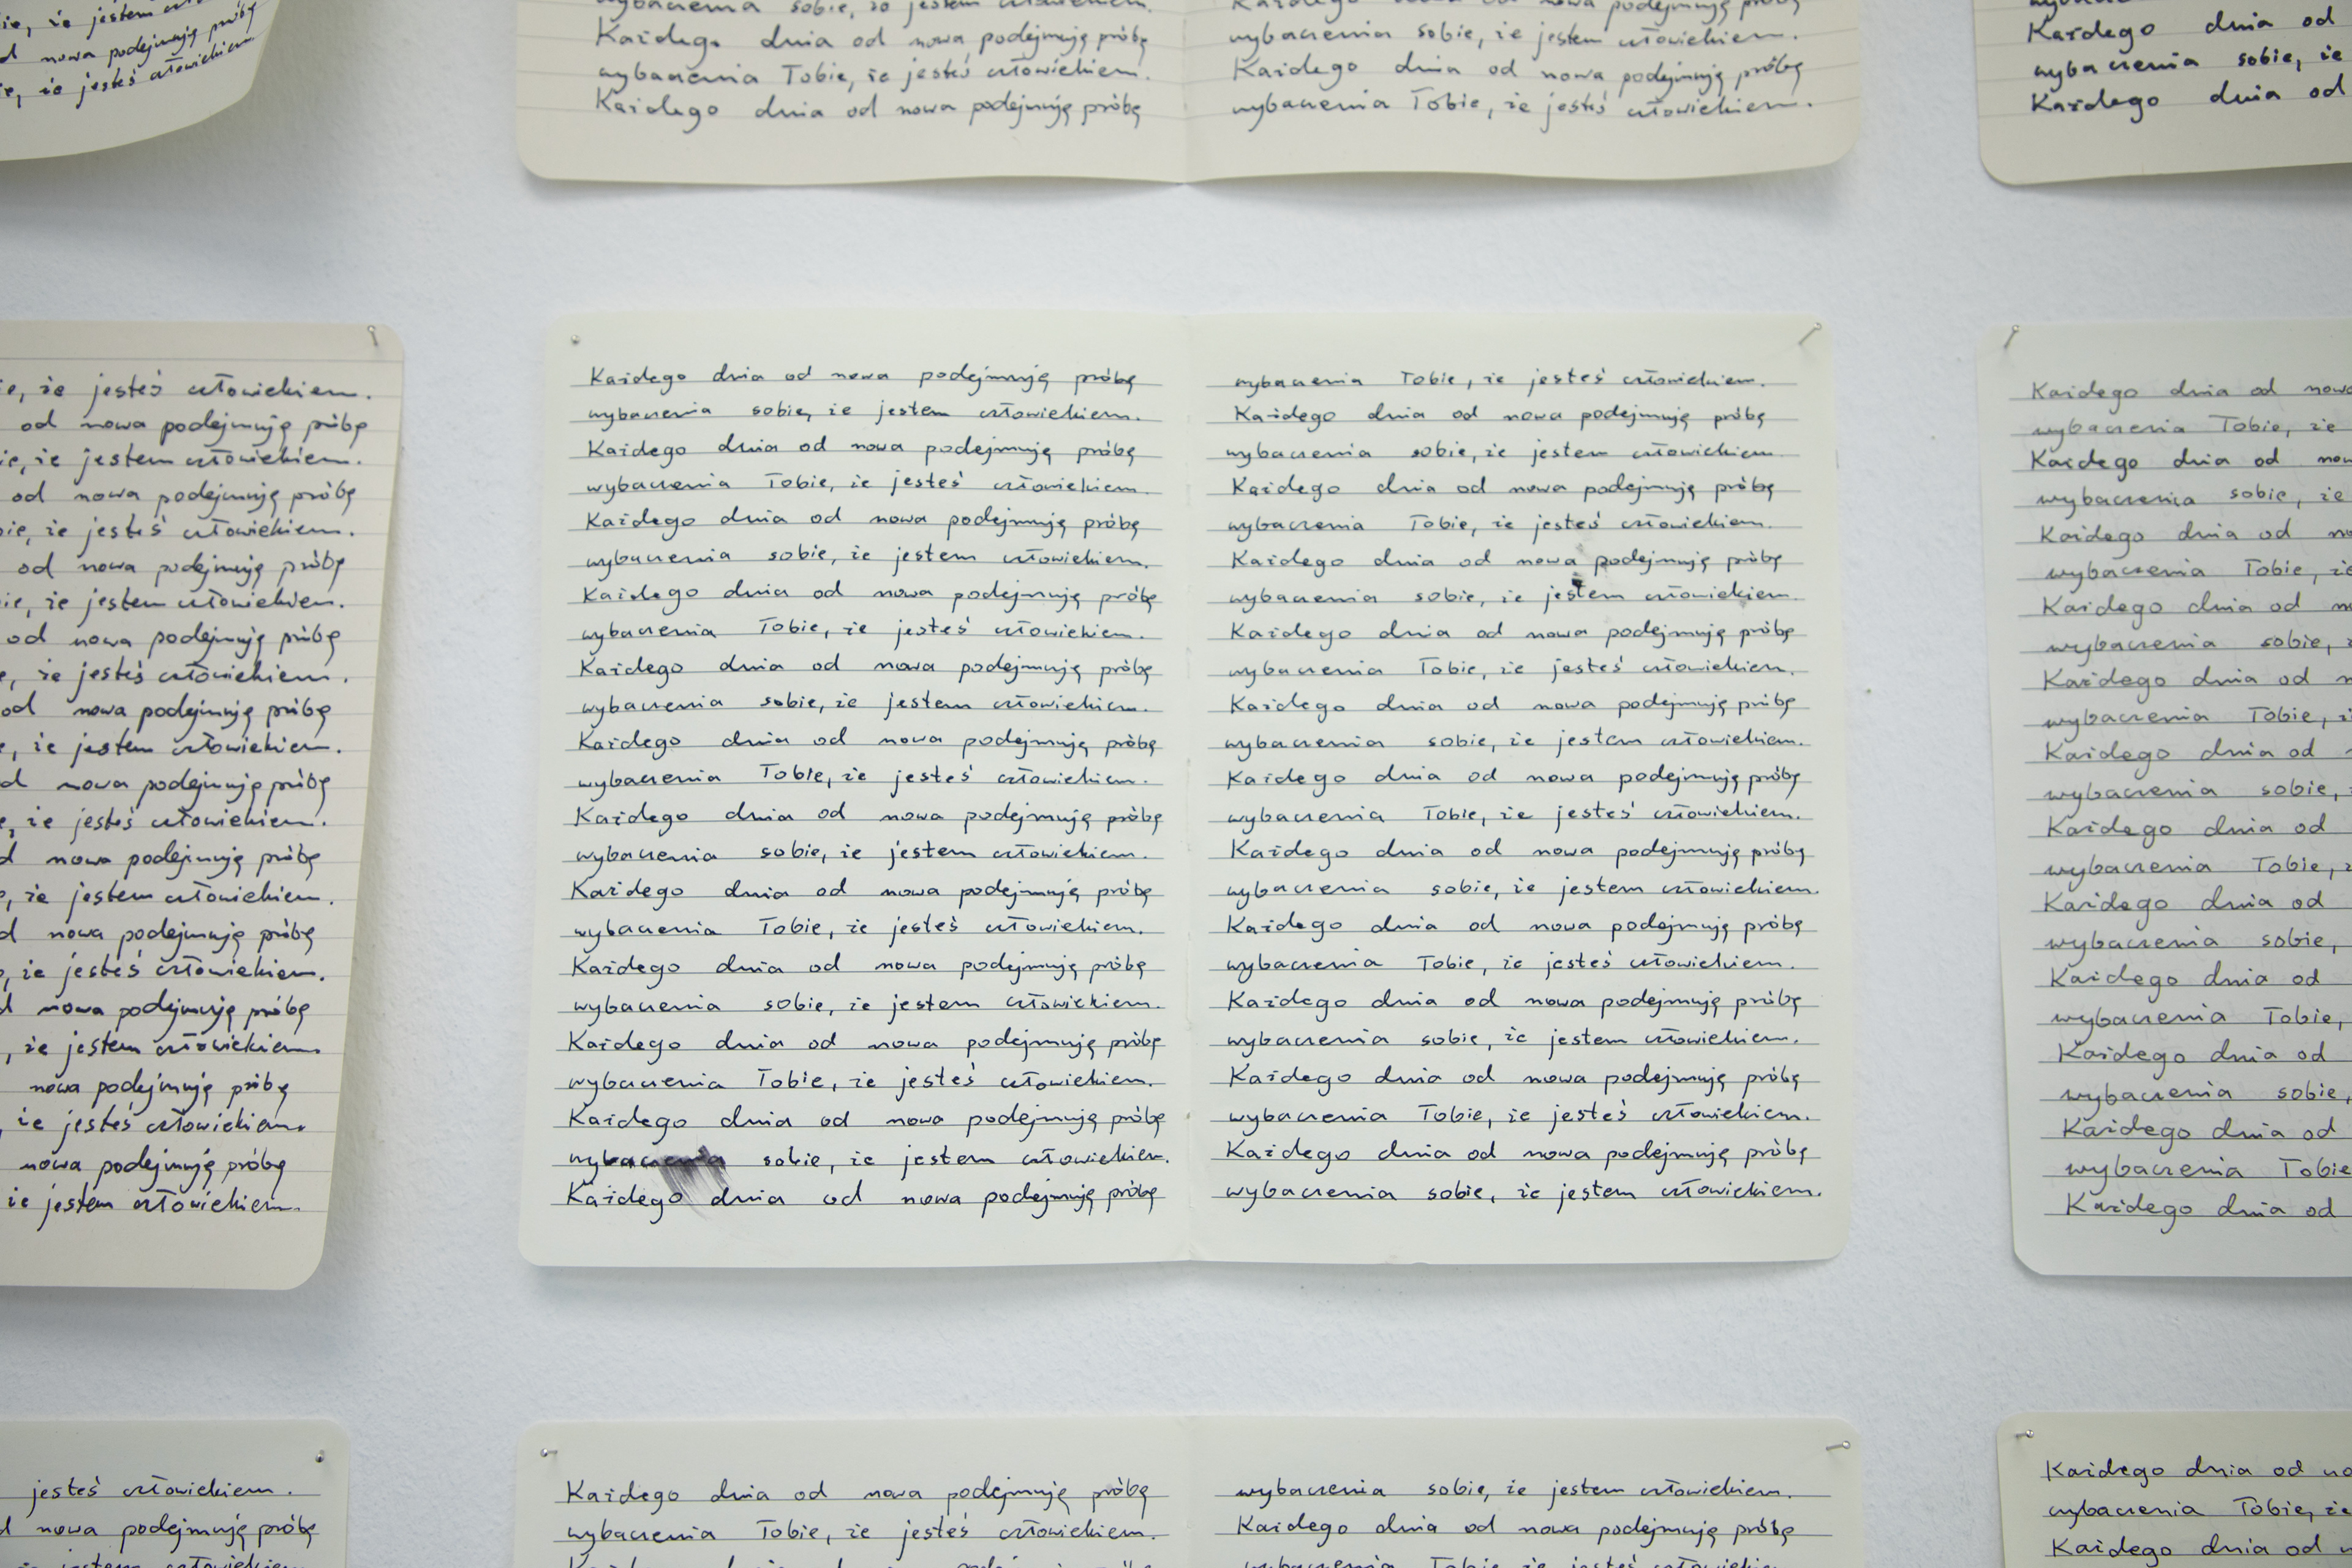 że jestem
nowa podejmuję próbę
że jesteś człowiekiem
wybaczenia sobie, że jestem człowiekiem.
Każdego dnia od nowa podejmuję próbę
wybaczenia Tobie, że jesteś człowiekiem.
Każdego dnia od nowa podejmuję próbę
Każdego dnia od nowa podejmuję próbę
wybaczenia sobie, że jestem człowiekiem.
Każdego dnia od nowa podejmuję próbę
wybaczenia Tobie, że jesteś człowiekiem.
Każdego dnia od
wybaczenia sobie, że
Każdego dnia od
że jesteś człowiekiem.
od nowa podejmuję próbę
że jestem człowiekiem.
od nowa podejmuję próbę
że jesteś człowiekiem.
od nowa podejmuję próbę
że jestem człowiekiem.
od nowa podejmuję próbę
że jesteś człowiekiem.
od nowa podejmuję próbę
że jestem człowiekiem.
nowa podejmuję próbę
że jesteś człowiekiem.
nowa podejmuję próbę
że jestem człowiekiem.
nowa podejmuję próbę
że jesteś człowiekiem.
nowa podejmuję próbę
że jestem człowiekiem.
nowa podejmuję próbę
że jesteś człowiekiem.
nowa podejmuję próbę
że jestem człowiekiem.
Każdego dnia od nowa podejmuję próbę
wybaczenia sobie, że jestem człowiekiem.
Każdego dnia od nowa podejmuję próbę
wybaczenia Tobie, że jesteś człowiekiem.
Każdego dnia od nowa podejmuję próbę
wybaczenia sobie, że jestem człowiekiem.
Każdego dnia od nowa podejmuję próbę
wybaczenia Tobie, że jesteś człowiekiem.
Każdego dnia od nowa podejmuję próbę
wybaczenia sobie, że jestem człowiekiem.
Każdego dnia od nowa podejmuję próbę
wybaczenia Tobie, że jesteś człowiekiem.
Każdego dnia od nowa podejmuję próbę
wybaczenia sobie, że jestem człowiekiem.
Każdego dnia od nowa podejmuję próbę
wybaczenia Tobie, że jesteś człowiekiem.
Każdego dnia od nowa podejmuję próbę
wybaczenia sobie, że jestem człowiekiem.
Każdego dnia od nowa podejmuję próbę
wybaczenia Tobie, że jesteś człowiekiem.
Każdego dnia od nowa podejmuję próbę
wybaczenia sobie, że jestem człowiekiem.
Każdego dnia od nowa podejmuję próbę
wybaczenia Tobie, że jesteś człowiekiem.
Każdego dnia od nowa podejmuję próbę
wybaczenia sobie, że jestem człowiekiem.
Każdego dnia od nowa podejmuję próbę
wybaczenia Tobie, że jesteś człowiekiem.
Każdego dnia od nowa podejmuję próbę
wybaczenia sobie, że jestem człowiekiem.
Każdego dnia od nowa podejmuję próbę
wybaczenia Tobie, że jesteś człowiekiem.
Każdego dnia od nowa podejmuję próbę
wybaczenia sobie, że jestem człowiekiem.
Każdego dnia od nowa podejmuję próbę
wybaczenia Tobie, że jesteś człowiekiem.
Każdego dnia od nowa podejmuję próbę
wybaczenia sobie, że jestem człowiekiem.
Każdego dnia od nowa podejmuję próbę
wybaczenia Tobie, że jesteś człowiekiem.
Każdego dnia od nowa podejmuję próbę
wybaczenia sobie, że jestem człowiekiem.
Każdego dnia od nowa podejmuję próbę
wybaczenia Tobie, że jesteś człowiekiem.
Każdego dnia od nowa podejmuję próbę
wybaczenia sobie, że jestem człowiekiem.
Każdego dnia od nowa podejmuję próbę
wybaczenia Tobie, że jesteś człowiekiem.
Każdego dnia od nowa podejmuję próbę
wybaczenia sobie, że jestem człowiekiem.
Każdego dnia od nowa
wybaczenia Tobie, że
Każdego dnia od
wybaczenia sobie, że
Każdego dnia od
wybaczenia Tobie,
Każdego dnia od
wybaczenia sobie,
Każdego dnia od
wybaczenia Tobie,
Każdego dnia od
wybaczenia sobie,
Każdego dnia od
wybaczenia Tobie,
Każdego dnia od
wybaczenia sobie,
Każdego dnia od
wybaczenia Tobie,
Każdego dnia od
wybaczenia sobie,
Każdego dnia od
wybaczenia Tobie
Każdego dnia od
jesteś człowiekiem.
nowa podejmuję próbę
jestem człowiekiem
Każdego dnia od nowa podejmuję próbę
wybaczenia Tobie, że jesteś człowiekiem.
wybaczenia sobie, że jestem człowiekiem.
Każdego dnia od nowa podejmuję próbę
wybaczenia Tobie, że jesteś człowiekiem
Każdego dnia od
wybaczenia Tobie, że
Każdego dnia od